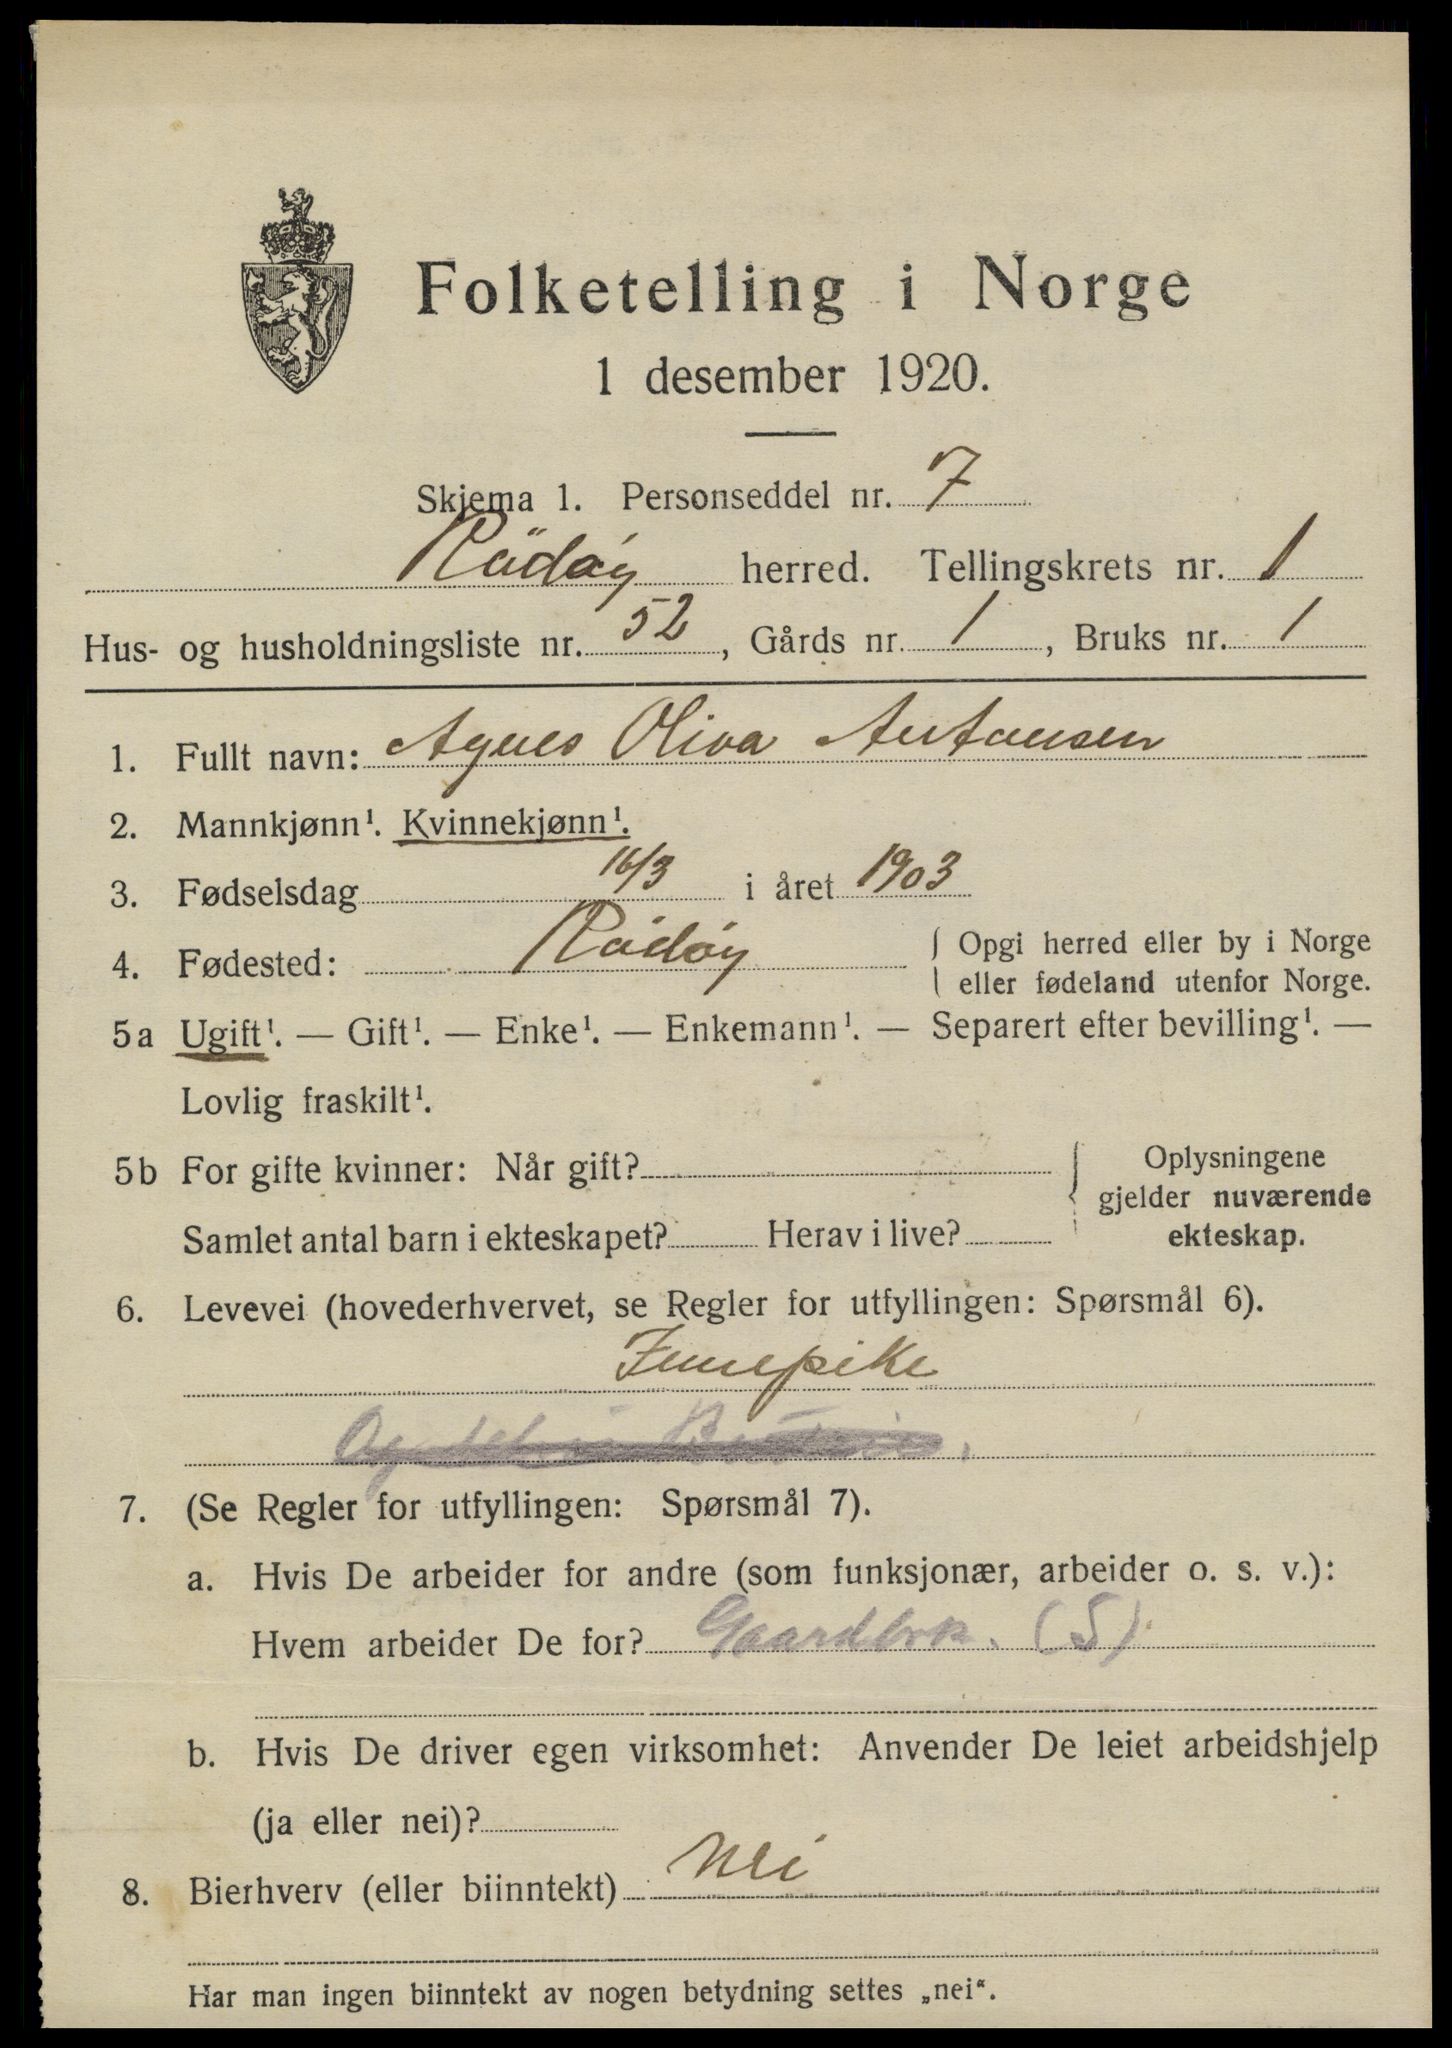 Folketelling i Norge
1 desember 1920.
Skjema 1. Personseddel nr. 7
Rödøy herred. Tellingskrets nr. 1
Hus- og husholdningsliste nr. 52, Gårds nr. 1, Bruks nr. 1
1. Fullt navn: Agnes Oliva Antonsen
2. Mannkjønn¹. Kvinnekjønn¹.
3. Fødselsdag 16/3 i året 1903
4. Fødested: Rødøy { Opgi herred eller by i Norge
eller fødeland utenfor Norge.
5a Ugift¹. — Gift¹. — Enke¹. — Enkemann¹. — Separert efter bevilling¹. —
Lovlig fraskilt¹.
5b For gifte kvinner: Når gift? { Oplysningene
gjelder nuværende
Samlet antal barn i ekteskapet? Herav i live? ekteskap.
6. Levevei (hovederhvervet, se Regler for utfyllingen: Spørsmål 6).
Innepike
7. (Se Regler for utfyllingen: Spørsmål 7).
a. Hvis De arbeider for andre (som funksjonær, arbeider o. s. v.):
Hvem arbeider De for? Gaardbrk. (S)
b. Hvis De driver egen virksomhet: Anvender De leiet arbeidshjelp
(ja eller nei)?
8. Bierhverv (eller biinntekt) Nei
Har man ingen biinntekt av nogen betydning settes „nei“.